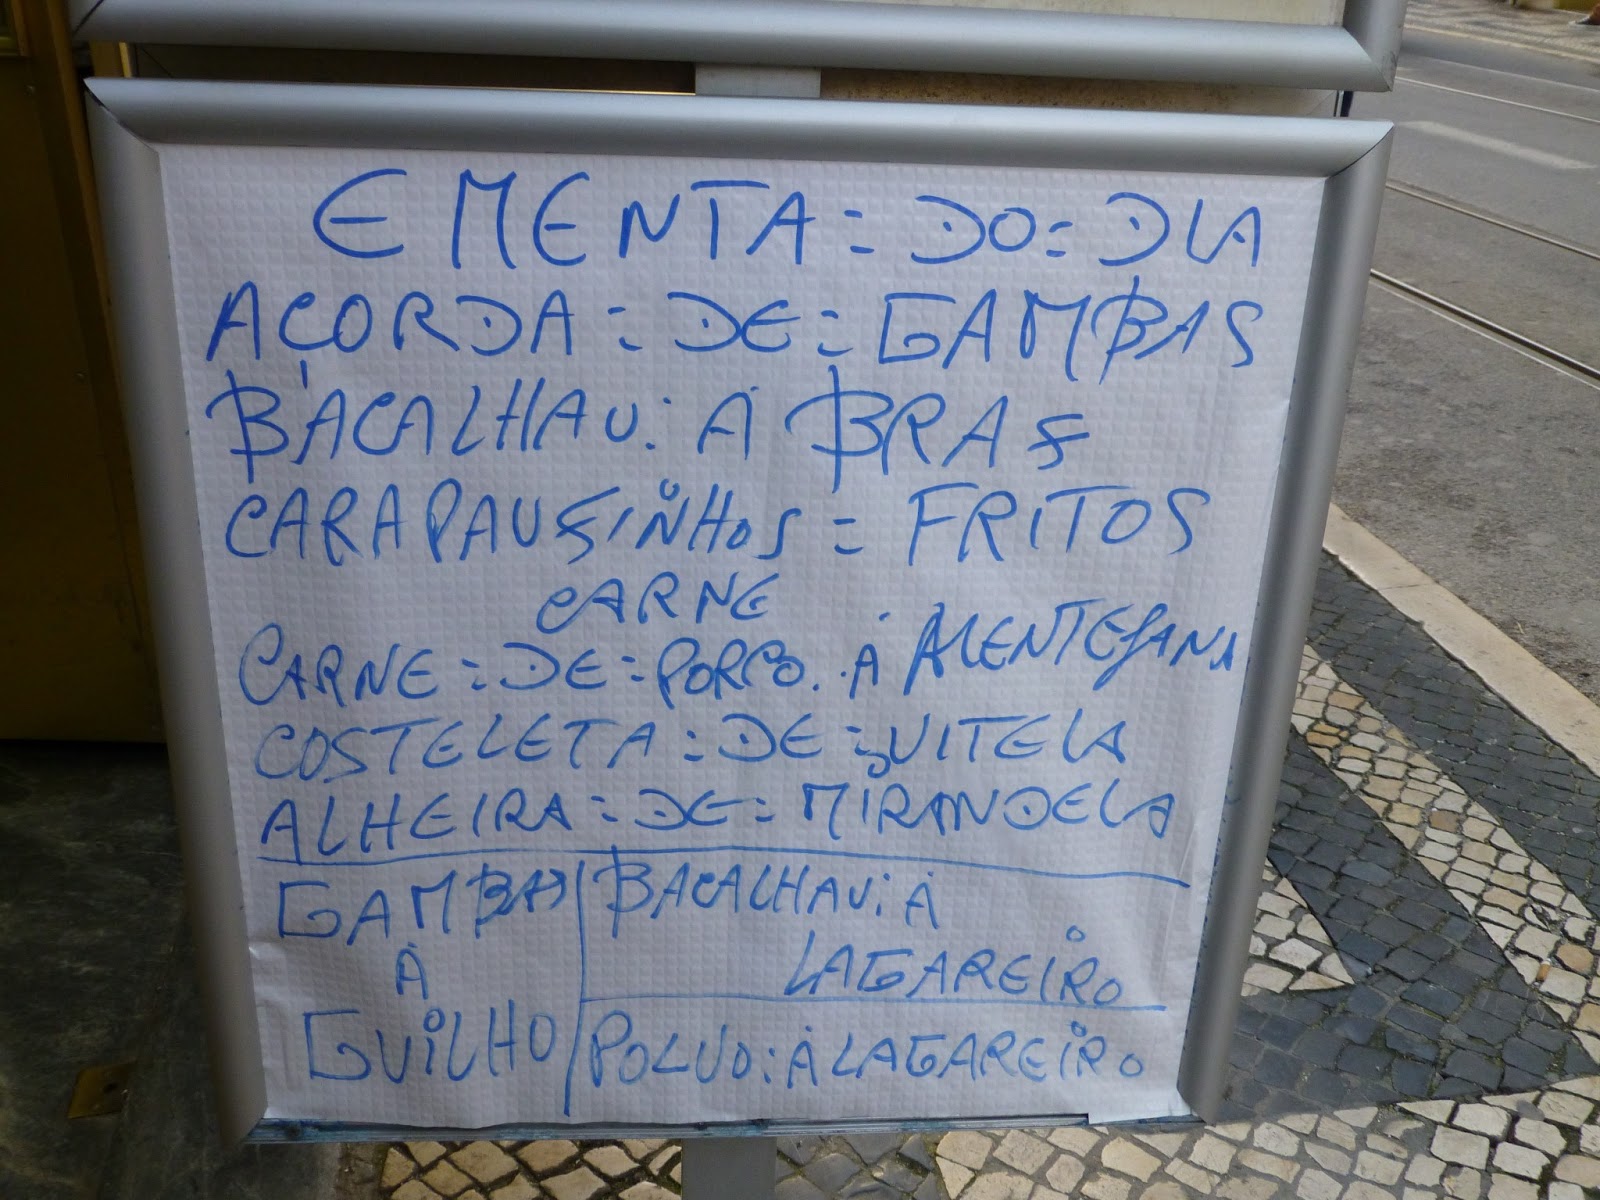 EMENTA = DO = DIA
AÇORDA = DE = GAMBAS
BACALHAU: À BRAS
CARAPAUSINHOS = FRITOS
CARNE
CARNE = DE = PORCO. À ALENTEJANA
COSTELETA = DE = VITELA
ALHEIRA = DE = MIRANDELA
GAMBAS
À
GUILHO
BACALHAU: À
LAGAREIRO
POLVO: À LAGAREIRO